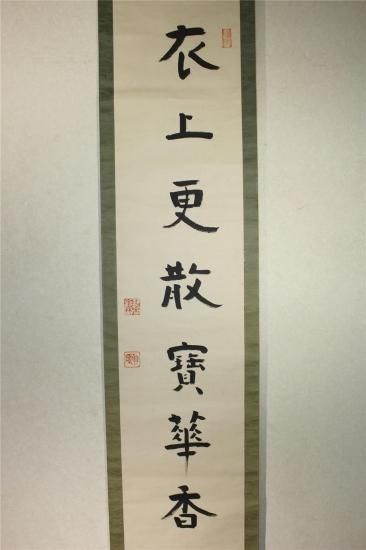 衣上更散寶華香